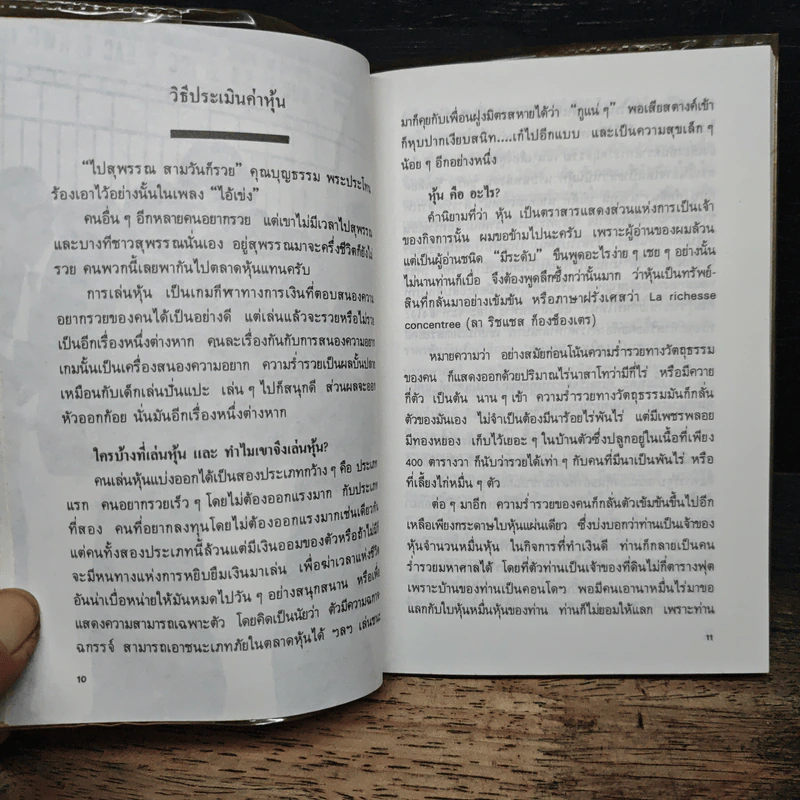 วิธีประเมินค่าหุ้น
“ไปสุพรรณ สามวันก็รวย” คุณบุญธรรม พระประโทน
ร้องเอาไว้อย่างนั้นในเพลง “ไอ้เข่ง”
คนอื่น ๆ อีกหลายคนอยากรวย แต่เขาไม่มีเวลาไปสุพรรณ
และบางทีชาวสุพรรณนั่นเอง อยู่สุพรรณมาจะครึ่งชีวิตก็ยังไม่
รวย คนพวกนี้เลยพากันไปตลาดหุ้นแทนครับ
การเล่นหุ้น เป็นเกมกีฬาทางการเงินที่ตอบสนองความ
อยากรวยของคนได้เป็นอย่างดี แต่เล่นแล้วจะรวยหรือไม่รวย
เป็นอีกเรื่องหนึ่งต่างหาก คนละเรื่องกันกับการสนองความอยาก
เกมนั้นเป็นเครื่องสนองความอยาก ความร่ำรวยเป็นผลบั้นปลาย
เหมือนกับเด็กเล่นปั่นแปะ เล่น ๆ ไปก็สนุกดี ส่วนผลจะออก
หัวออกก้อย นั่นมันอีกเรื่องหนึ่งต่างหาก
ใครบ้างที่เล่นหุ้น และ ทำไมเขาจึงเล่นหุ้น?
คนเล่นหุ้นแบ่งออกได้เป็นสองประเภทกว้าง ๆ คือ ประเภท
แรก คนอยากรวยเร็ว ๆ โดยไม่ต้องออกแรงมาก กับประเภท
ที่สอง คนที่อยากลงทุนโดยไม่ต้องออกแรงมากเช่นเดียวกัน
แต่คนทั้งสองประเภทนี้ล้วนแต่มีเงินออมของตัวหรือถ้าไม่มีก็
จะมีหนทางแห่งการหยิบยืมเงินมาเล่น เพื่อฆ่าเวลาแห่งชีวิต
อันน่าเบื่อหน่ายให้มันหมดไปวัน ๆ อย่างสนุกสนาน หรือเพื่อ
แสดงความสามารถเฉพาะตัว โดยคิดเป็นนัยว่า ตัวมีความฉกาจ
ฉกรรจ์ สามารถเอาชนะเภทภัยในตลาดหุ้นได้ ฯลฯ เล่นชนะ
10
มาก็คุยกับเพื่อนฝูงมิตรสหายได้ว่า “กูแน่ ๆ” พอเสียสตางค์เข้า
ก็หุบปากเงียบสนิท....เก๋ไปอีกแบบ และเป็นความสุขเล็ก ๆ
น้อย ๆ อีกอย่างหนึ่ง
หุ้น คือ อะไร?
คำนิยามที่ว่า หุ้น เป็นตราสารแสดงส่วนแห่งการเป็นเจ้า
ของกิจการนั้น ผมขอข้ามไปนะครับ เพราะผู้อ่านของผมล้วน
แต่เป็นผู้อ่านชนิด “มีระดับ” ขืนพูดอะไรง่าย ๆ เชย ๆ อย่างนั้น
ไม่นานท่านก็เบื่อ จึงต้องพูดลึกซึ้งกว่านั้นมาก ว่าหุ้นเป็นทรัพย์-
สินที่กลั่นมาอย่างเข้มข้น หรือภาษาฝรั่งเศสว่า La richesse
concentree (ลา ริชแชส ก็องซ็องเตร)
หมายความว่า อย่างสมัยก่อนโน้นความร่ำรวยทางวัตถุธรรม
ของคน ก็แสดงออกด้วยปริมาณไร่นาสาโทว่ามีกี่ไร่ หรือมีควาย
กี่ตัว เป็นต้น นาน ๆ เข้า ความร่ำรวยทางวัตถุธรรมมันก็กลั่น
ตัวของมันเอง ไม่จำเป็นต้องมีนาร้อยไร่พันไร่ แต่มีเพชรพลอย
มีทองหยอง เก็บไว้เยอะ ๆ ในบ้านตัวซึ่งปลูกอยู่ในเนื้อที่เพียง
400 ตารางวา ก็นับว่ารวยได้เท่า ๆ กับคนที่มีนาเป็นพันไร่ หรือ
ที่เลี้ยงไก่หมื่น ๆ ตัว
ต่อ ๆ มาอีก ความร่ำรวยของคนก็กลั่นตัวเข้มข้นขึ้นไปอีก
เหลือเพียงกระดาษใบหุ้นแผ่นเดียว ซึ่งบ่งบอกว่าท่านเป็นเจ้าของ
หุ้นจำนวนหมื่นหุ้น ในกิจการที่ทำเงินดี ท่านก็กลายเป็นคน
ร่ำรวยมหาศาลได้ โดยที่ตัวท่านเป็นเจ้าของที่ดินไม่กี่ตารางฟุต
เพราะบ้านของท่านเป็นคอนโดฯ พอมีคนเอานาหมื่นไร่มาขอ
แลกกับใบหุ้นหมื่นหุ้นของท่าน ท่านก็ไม่ยอมให้แลก เพราะท่าน
11